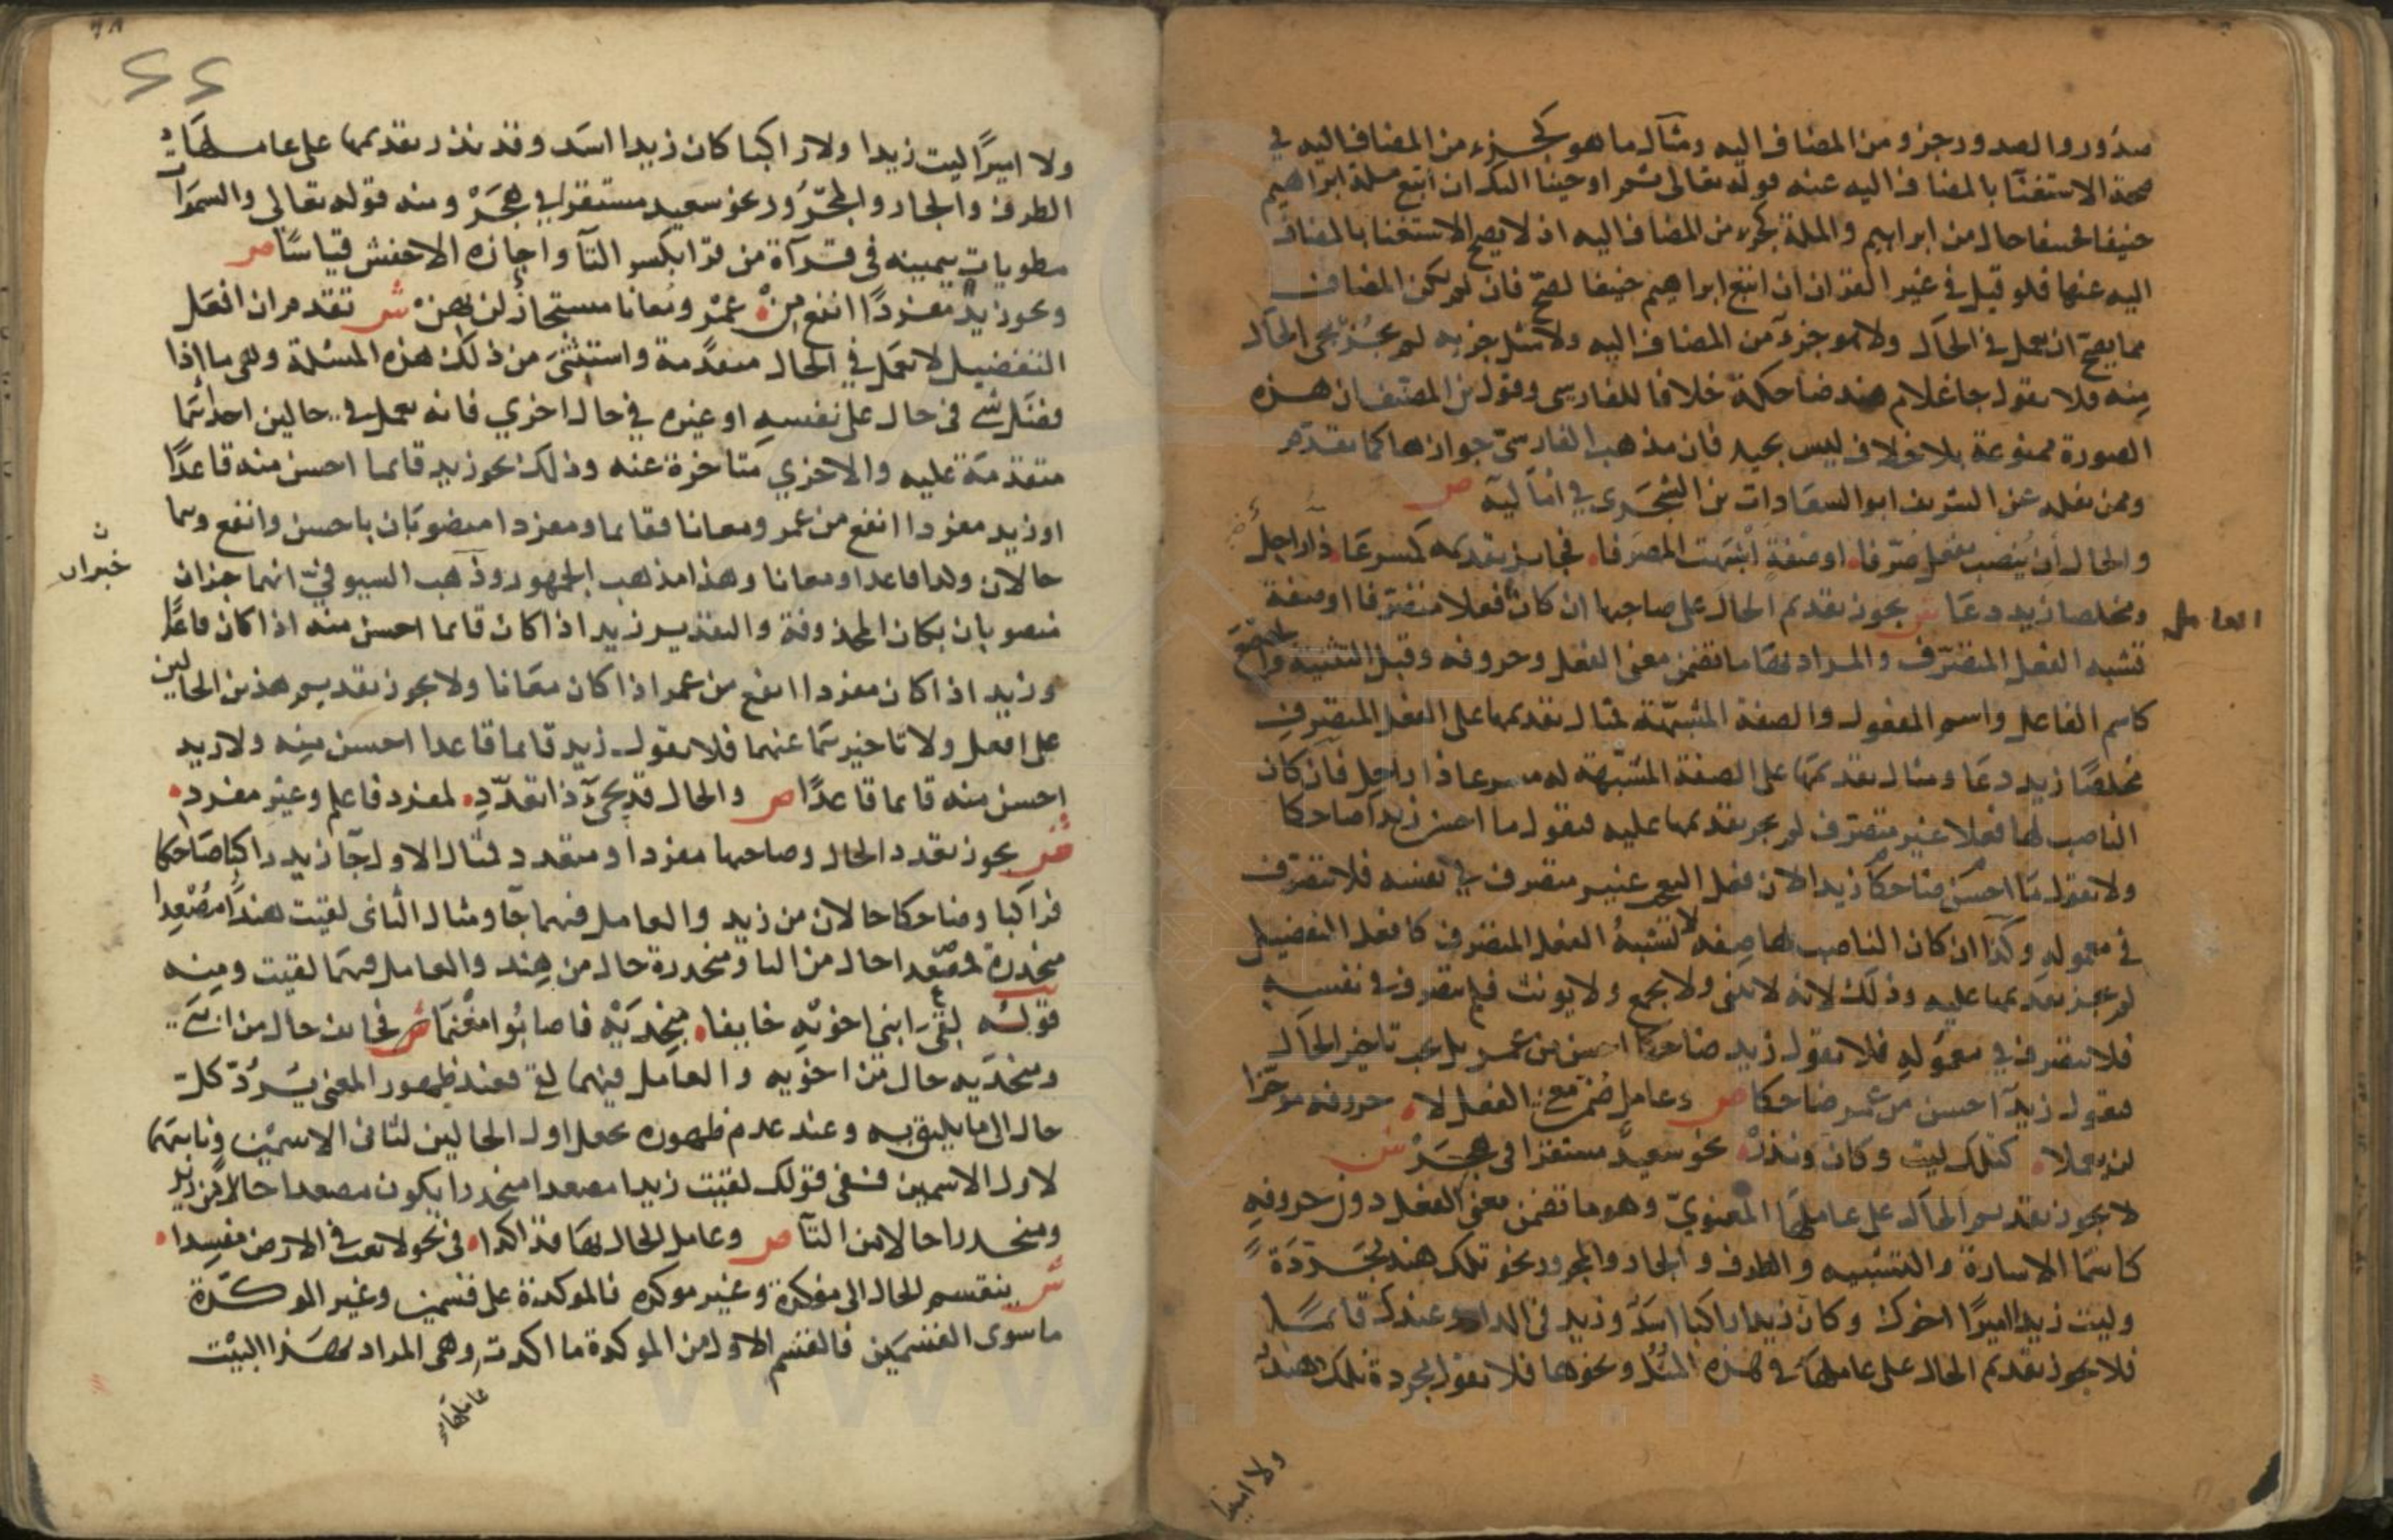 صدور والصدور جزو من المضاف اليه ومثال ما هو كجزء من المضاف اليه في
صحة الاستغنا بالمضاف اليه عنه قوله تعالى ثم اوحينا اليك ان اتبع ملة ابراهيم
حنيفا فحنيفا حال من ابراهيم والملة كجزء من المضاف اليه اذ لا يصح الاستغنا بالمضاف
اليه عنها فلو قيل في غير القران ان اتبع ابراهيم حنيفا لصح فان لم يكن المضاف
مما يصح ان يعمل في الحال ولا هو جزء من المضاف اليه ولا مثل جزيه لم يجز مجى الحال
منه فلا تقول جا غلام هند ضاحكة خلافا للفارسي وقول بن المصنف ان هذه
الصورة ممنوعة بلا خلاف ليس بجيد فان مذهب الفارسي جوازها كما تقدم
وممن نقله عن الشريف ابو السعادات بن الشجري في اماليه ص
والحال ان ينصب بفعل صرفا او صفة اشبهت المصرفا فجايز تقديمه كمسرعا ذا راحل
ومخلصا زيد دعا ش يجوز تقديم الحال على صاحبها ان كان فعلا متصرفا او صفة
العامل
تشبه الفعل المتصرف والمراد بها ما تضمن معنى الفعل وحروفه وقبل التثنية والجمع
كاسم الفاعل واسم المفعول والصفة المشبهة مثال تقديمها على الفعل المتصرف
مخلصا زيد دعا ومثال تقديمها على الصفة المشبهة له مسرعا ذا راحل فان كان
الناصب لها فعلا غير متصرف لم يجز تقديمها عليه فتقول ما احسن زيدا ضاحكا
ولا تقول ما احسن ضاحكا زيدا لان فعل التعجب غير متصرف في نفسه فلا تتصرف
في معموله وكذا ان كان الناصب لها صفة لا تشبه الفعل المتصرف كافعل التفضيل
لم يجز تقديمها عليه وذلك لانه لا يثنى ولا يجمع ولا يونث فلم يتصرف في نفسه
فلا تتصرف في معموله فلا تقول زيد ضاحكا احسن من عمر بل يجب تاخير الحال
فتقول زيد احسن من عمر ضاحكا ص وعامل ضمن معنى الفعل لا حروفه موخرا
لن يعملا كتلك ليت وكان وندر نحو سعيد مستقرا في هجر ش
لا يجوز تقديم الحال على عاملها المعنوي وهو ما تضمن معنى الفعل دون حروفه
كاسما الاشارة والتشبيه والظرف والجار والمجرور نحو تلك هند مجردة
وليت زيدا اميرا اخوك وكان زيدا راكبا اسد وزيد في الدار وعندك قايما
فلا يجوز تقديم الحال على عاملها في هذه المثل ونحوها فلا تقول مجردة تلك هند
ولا اميرا
ولا اميرا ليت زيدا ولا راكبا كان زيدا اسد وقد نذر تقديمها على عاملها
الظرف والجار والمجرور نحو سعيد مستقرا في هجر ومنه قوله تعالى والسموات
مطويات بيمينه في قرآة من قرا بكسر التآ واجازه الاخفش قياسا ص
ونحو زيد مفردا انفع من عمر ومعانا مستجاز لن يهن ش تقدم ان افعل
التفضيل لا يعمل في الحال متقدمة واستثنى من ذلك هذه المسئلة وهي ما اذا
فضل شي في حال على نفسه او غيره في حال اخرى فانه يعمل في حالين احداهما
متقدمة عليه والاخرى متاخرة عنه وذلك نحو زيد قايما احسن منه قاعدا
او زيد مفردا انفع من عمر ومعانا فقايما ومفردا منصوبان باحسن وانفع وهما
حالان وكذا قاعدا ومعانا وهذا مذهب الجمهور وذهب السيرافي انهما خبران
خبران
منصوبان بكان المحذوفة والتقدير زيد اذا كان قايما احسن منه اذا كان قاعدا
وزيد اذا كان مفردا انفع من عمر اذا كان معانا ولا يجوز تقديم هذين الحالين
على افعل ولا تاخيرهما عنهما فلا تقول زيد قايما قاعدا احسن منه ولا زيد
احسن منه قايما قاعدا ص والحال قد يجيء ذا تعدد لمفرد فاعلم وغير مفرد
ش يجوز تعدد الحال وصاحبها مفرد او متعدد مثال الاول جآ زيد راكبا ضاحكا
فراكبا وضاحكا حالان من زيد والعامل فيهما جآ ومثال الثاني لقيت هندا مصعدا
منحدرة فمصعدا حال من التا ومنحدرة حال من هند والعامل فيهما لقيت ومنه
قوله لقى ابني اخويه خايفا منجديه فاصابوا مغنما ش فخايف حال من ابني
ومنجديه حال من اخويه والعامل فيهما لقى فعند ظهور المعنى يرد كل
حال الى ما يليق به وعند عدم ظهوره يجعل اول الحالين لثاني الاسمين وثانيهما
لاول الاسمين ففي قولك لقيت زيدا مصعدا منحدرا يكون مصعدا حالا من زيد
ومنحدرا حالا من التآ ص وعامل الحال بها قد اكدا في نحو لا تعث في الارض مفسدا
ش ينقسم الحال الى موكدة وغير موكده فالموكدة على قسمين وغير الموكدة
ما سوى القسمين فالقسم الاول من الموكدة ما اكدت وهي المراد بهذا البيت
عاملها